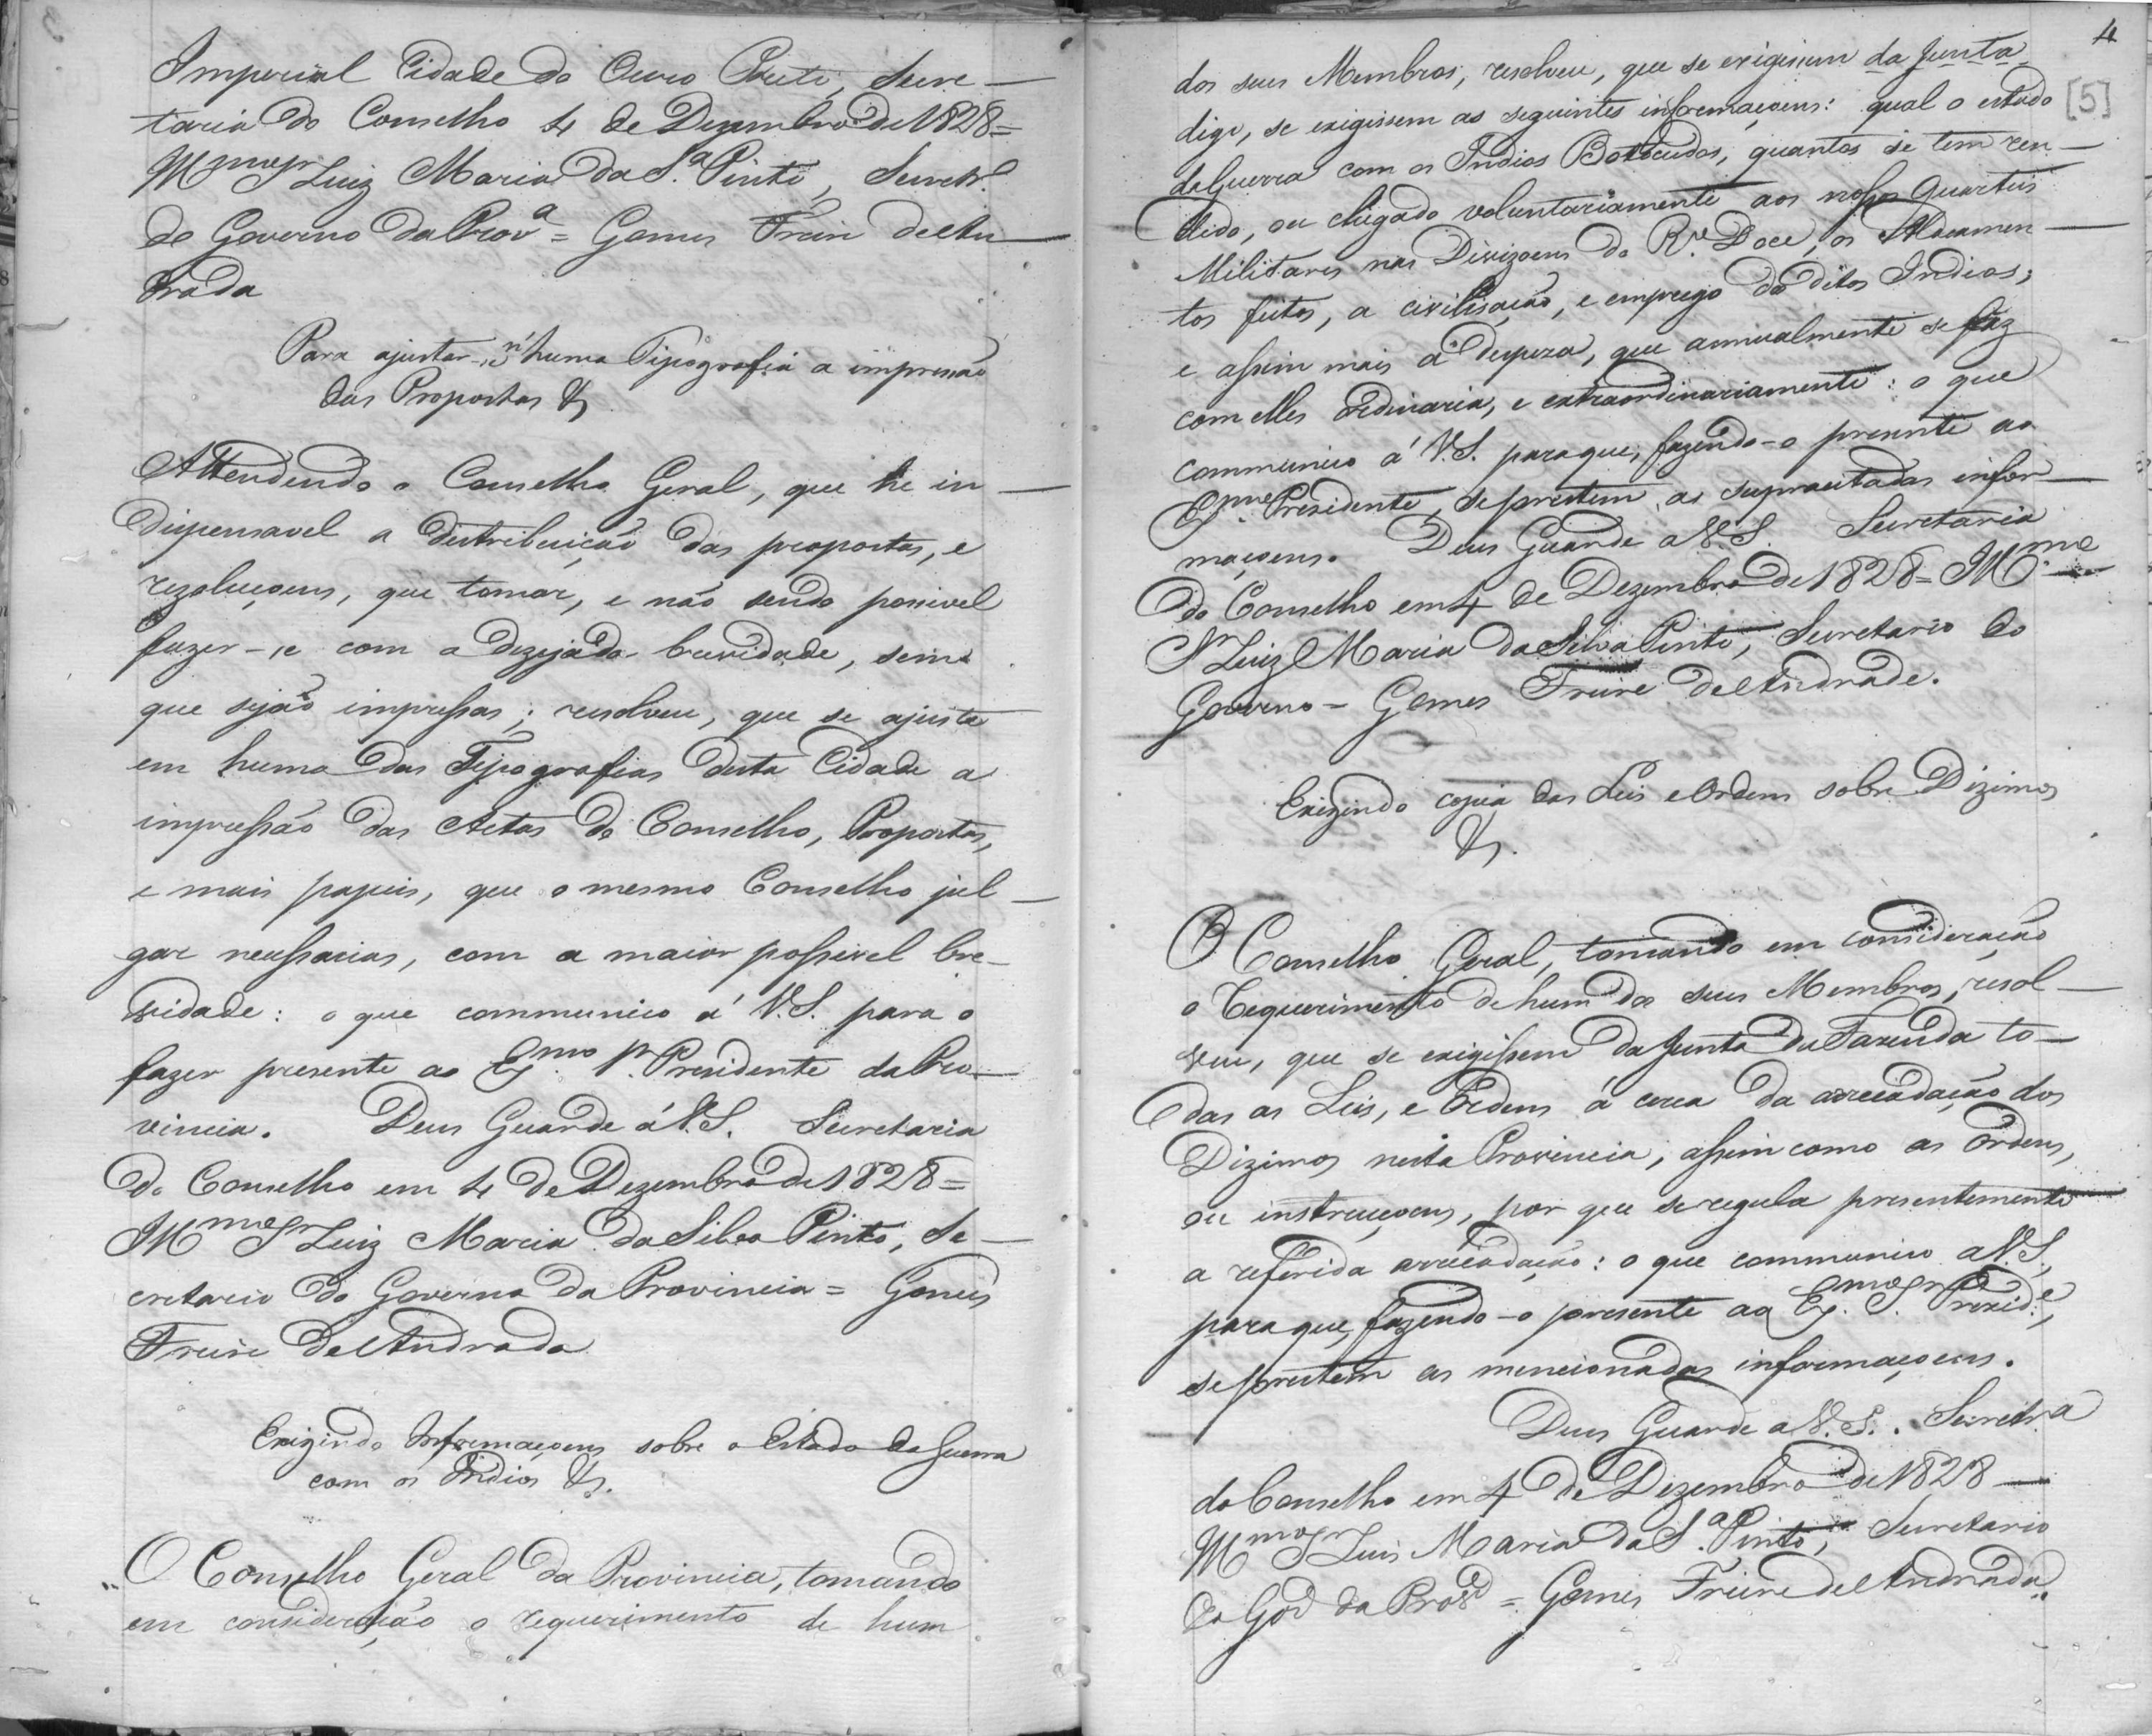 Imperial Cidade do Ouro Preto, Secre-
taria do Conselho 4 de Dezembro de 1828=
Illmo Sr Luiz Maria da S.a Pinto, Secretr.o
do Governo da Prov.a = Gomes Freire de An-
drada
Para ajustar-se n'huma Tipografia a impressão
das Propostas &
Attendendo o Conselho Geral, que he in-
dispensavel a distribuição das propostas, e
rezoluçoens, que tomar, e não sendo possivel
fazer-se com a dezejada brevidade, sem
que sejão impressas; resolveu, que se ajuste
em huma das Tipografias desta Cidade a
impressão das Actas do Conselho, Propostas,
e mais papeis, que o mesmo Conselho jul-
gar necessarios, com a maior possivel bre-
vidade: o que communico á V.S. para o
fazer presente ao Exmo Sr. Presidente da Pro-
vincia. Deus Guarde á V.S. Secretaria
do Conselho em 4 de Dezembro de 1828=
Illmo Sr Luiz Maria da Silva Pinto, Se-
cretario do Governo da Provincia = Gomes
Freire de Andrada
Exigindo Informaçoens sobre o Estado da Guerra
com os Indios &.
O Conselho Geral da Provincia, tomando
em consideração o requerimento de hum
4
[5]
dos seus Membros, resolveu, que se exigissem da Junta
digo, se exigissem as seguintes informaçoens: qual o estado
da Guerra com os Indios Botecudos, quantos se tem ren-
dido, ou chegado voluntariamente aos nossos Quarteis
Militares nas Divizoens do R.o Doce, os Aldeamen-
tos feitos, a civilisação, e emprego dos ditos Indios;
e assim mais a despeza, que annualmente se faz
com elles ordinaria, e extraordinariamente: o que
communico á V.S. para que, fazendo-o presente ao
Exmo Presidente, se prestem as supracitadas infor-
maçoens. Deus Guarde a V.S. Secretaria
do Conselho em 4 de Dezembro de 1828= Illmo
Sr Luiz Maria da Silva Pinto, Secretario do
Governo = Gomes Freire de Andrade.
Exigindo copia das Leis e Ordens sobre Dizimos
&.
O Conselho Geral, tomando em consideração
o requerimento de hum dos seus Membros, resol-
veu, que se exigissem da Junta da Fazenda to-
das as Leis, e Ordens á cerca da arrecadação dos
Dizimos nesta Provincia, assim como as ordens,
ou instrucçoens, por que se regula presentemente
a referida arrecadação: o que communico a V.S,
para que, fazendo-o presente ao Exmo Sr. Presid.e,
se prestem as mencionadas informaçoens.
Deus Guarde a V.S.. Secretr.a
do Conselho em 4 de Dezembro de 1828—
Illmo Sr Luis Maria da S.a Pinto, Secretario
do Gov.o da Prov.a = Gomes Freire de Andrada.